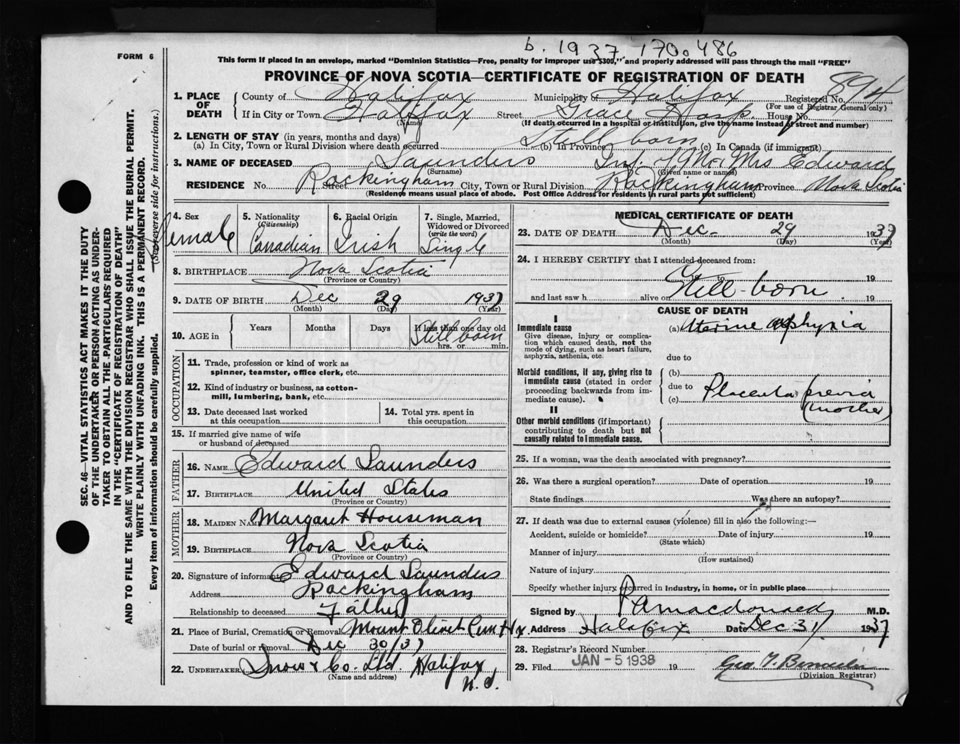 b. 1937. 170.486
FORM 6
This form if placed in an envelope, marked "Dominion Statistics—Free, penalty for improper use $300," and properly addressed will pass through the mail "FREE"
PROVINCE OF NOVA SCOTIA—CERTIFICATE OF REGISTRATION OF DEATH
1. PLACE OF DEATH
County of Halifax Municipality of Halifax Registered No. 894
(For use of Registrar General only)
If in City or Town Halifax Street Grace Hosp. House No.
(Name) (If death occurred in a hospital or institution, give the name instead of street and number)
2. LENGTH OF STAY (in years, months and days) Still born
(a) In City, Town or Rural Division where death occurred (b) In Province (c) In Canada (if immigrant)
3. NAME OF DECEASED Saunders Inf. of Mr & Mrs Edward
(Surname) (Given name or names)
RESIDENCE No. Rockingham Street City, Town or Rural Division Rockingham Province Nova Scotia
(Residence means usual place of abode. Post Office Address for residents in rural parts not sufficient)
SEC. 46—VITAL STATISTICS ACT MAKES IT THE DUTY
OF THE UNDERTAKER OR PERSON ACTING AS UNDER-
TAKER TO OBTAIN ALL THE PARTICULARS REQUIRED
IN THE "CERTIFICATE OF REGISTRATION OF DEATH"
AND TO FILE THE SAME WITH THE DIVISION REGISTRAR WHO SHALL ISSUE THE BURIAL PERMIT.
WRITE PLAINLY WITH UNFADING INK. THIS IS A PERMANENT RECORD.
Every item of information should be carefully supplied. (See reverse side for instructions.)
4. Sex
Female
5. Nationality
(Citizenship)
Canadian
6. Racial Origin
Irish
7. Single, Married,
Widowed or Divorced
(write the word)
Single
8. BIRTHPLACE Nova Scotia
(Province or Country)
9. DATE OF BIRTH Dec 29 1937
(Month) (Day) (Year)
10. AGE in Years Months Days If less than one day old
Still born
hrs. or min.
OCCUPATION
11. Trade, profession or kind of work as
spinner, teamster, office clerk, etc.
12. Kind of industry or business, as cotton-
mill, lumbering, bank, etc.
13. Date deceased last worked
at this occupation
14. Total yrs. spent in
this occupation
15. If married give name of wife
or husband of deceased
FATHER
16. NAME Edward Saunders
17. BIRTHPLACE United States
(Province or Country)
MOTHER
18. MAIDEN NAME Margaret Houseman
19. BIRTHPLACE Nova Scotia
(Province or Country)
20. Signature of informant Edward Saunders
Address Rockingham
Relationship to deceased Father
21. Place of Burial, Cremation or Removal Mount Olivet Cem Hx.
Date of burial or removal Dec 30/37
22. UNDERTAKER Snow & Co. Ltd Halifax
(Name and address) N.S.
MEDICAL CERTIFICATE OF DEATH
23. DATE OF DEATH Dec. 29 1937
(Month) (Day) (Year)
24. I HEREBY CERTIFY that I attended deceased from:
19
Still-born
and last saw h alive on 19
CAUSE OF DEATH
I
Immediate cause
Give disease, injury or complica-
tion which caused death, not the
mode of dying, such as heart failure,
asphyxia, asthenia, etc.
(a) Uterine asphyxia
due to
Morbid conditions, if any, giving rise to
immediate cause (stated in order
proceeding backwards from im-
mediate cause).
(b)
due to Placenta previa
(c) (mother)
II
Other morbid conditions (if important)
contributing to death but not
causally related to immediate cause.
25. If a woman, was the death associated with pregnancy?
26. Was there a surgical operation? Date of operation 19
State findings Was there an autopsy?
27. If death was due to external causes (violence) fill in also the following:—
Accident, suicide or homicide? Date of injury 19
(State which)
Manner of injury
(How sustained)
Nature of injury
Specify whether injury occurred in industry, in home, or in public place
Signed by Macdonald M.D.
Address Halifax Date Dec 31/ 1937
28. Registrar's Record Number
29. Filed JAN - 5 1938 19 Geo. T.
(Division Registrar)